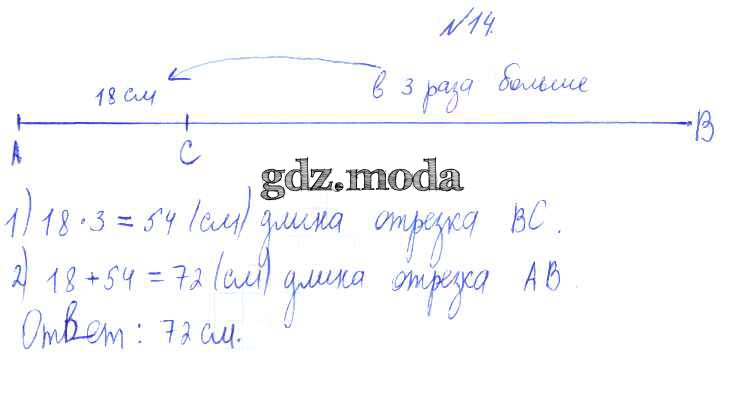 №14.
18 см
в 3 раза больше
A C B
gdz.moda
1) 18·3=54 (см) длина отрезка BC.
2) 18+54=72 (см) длина отрезка AB.
Ответ: 72 см.